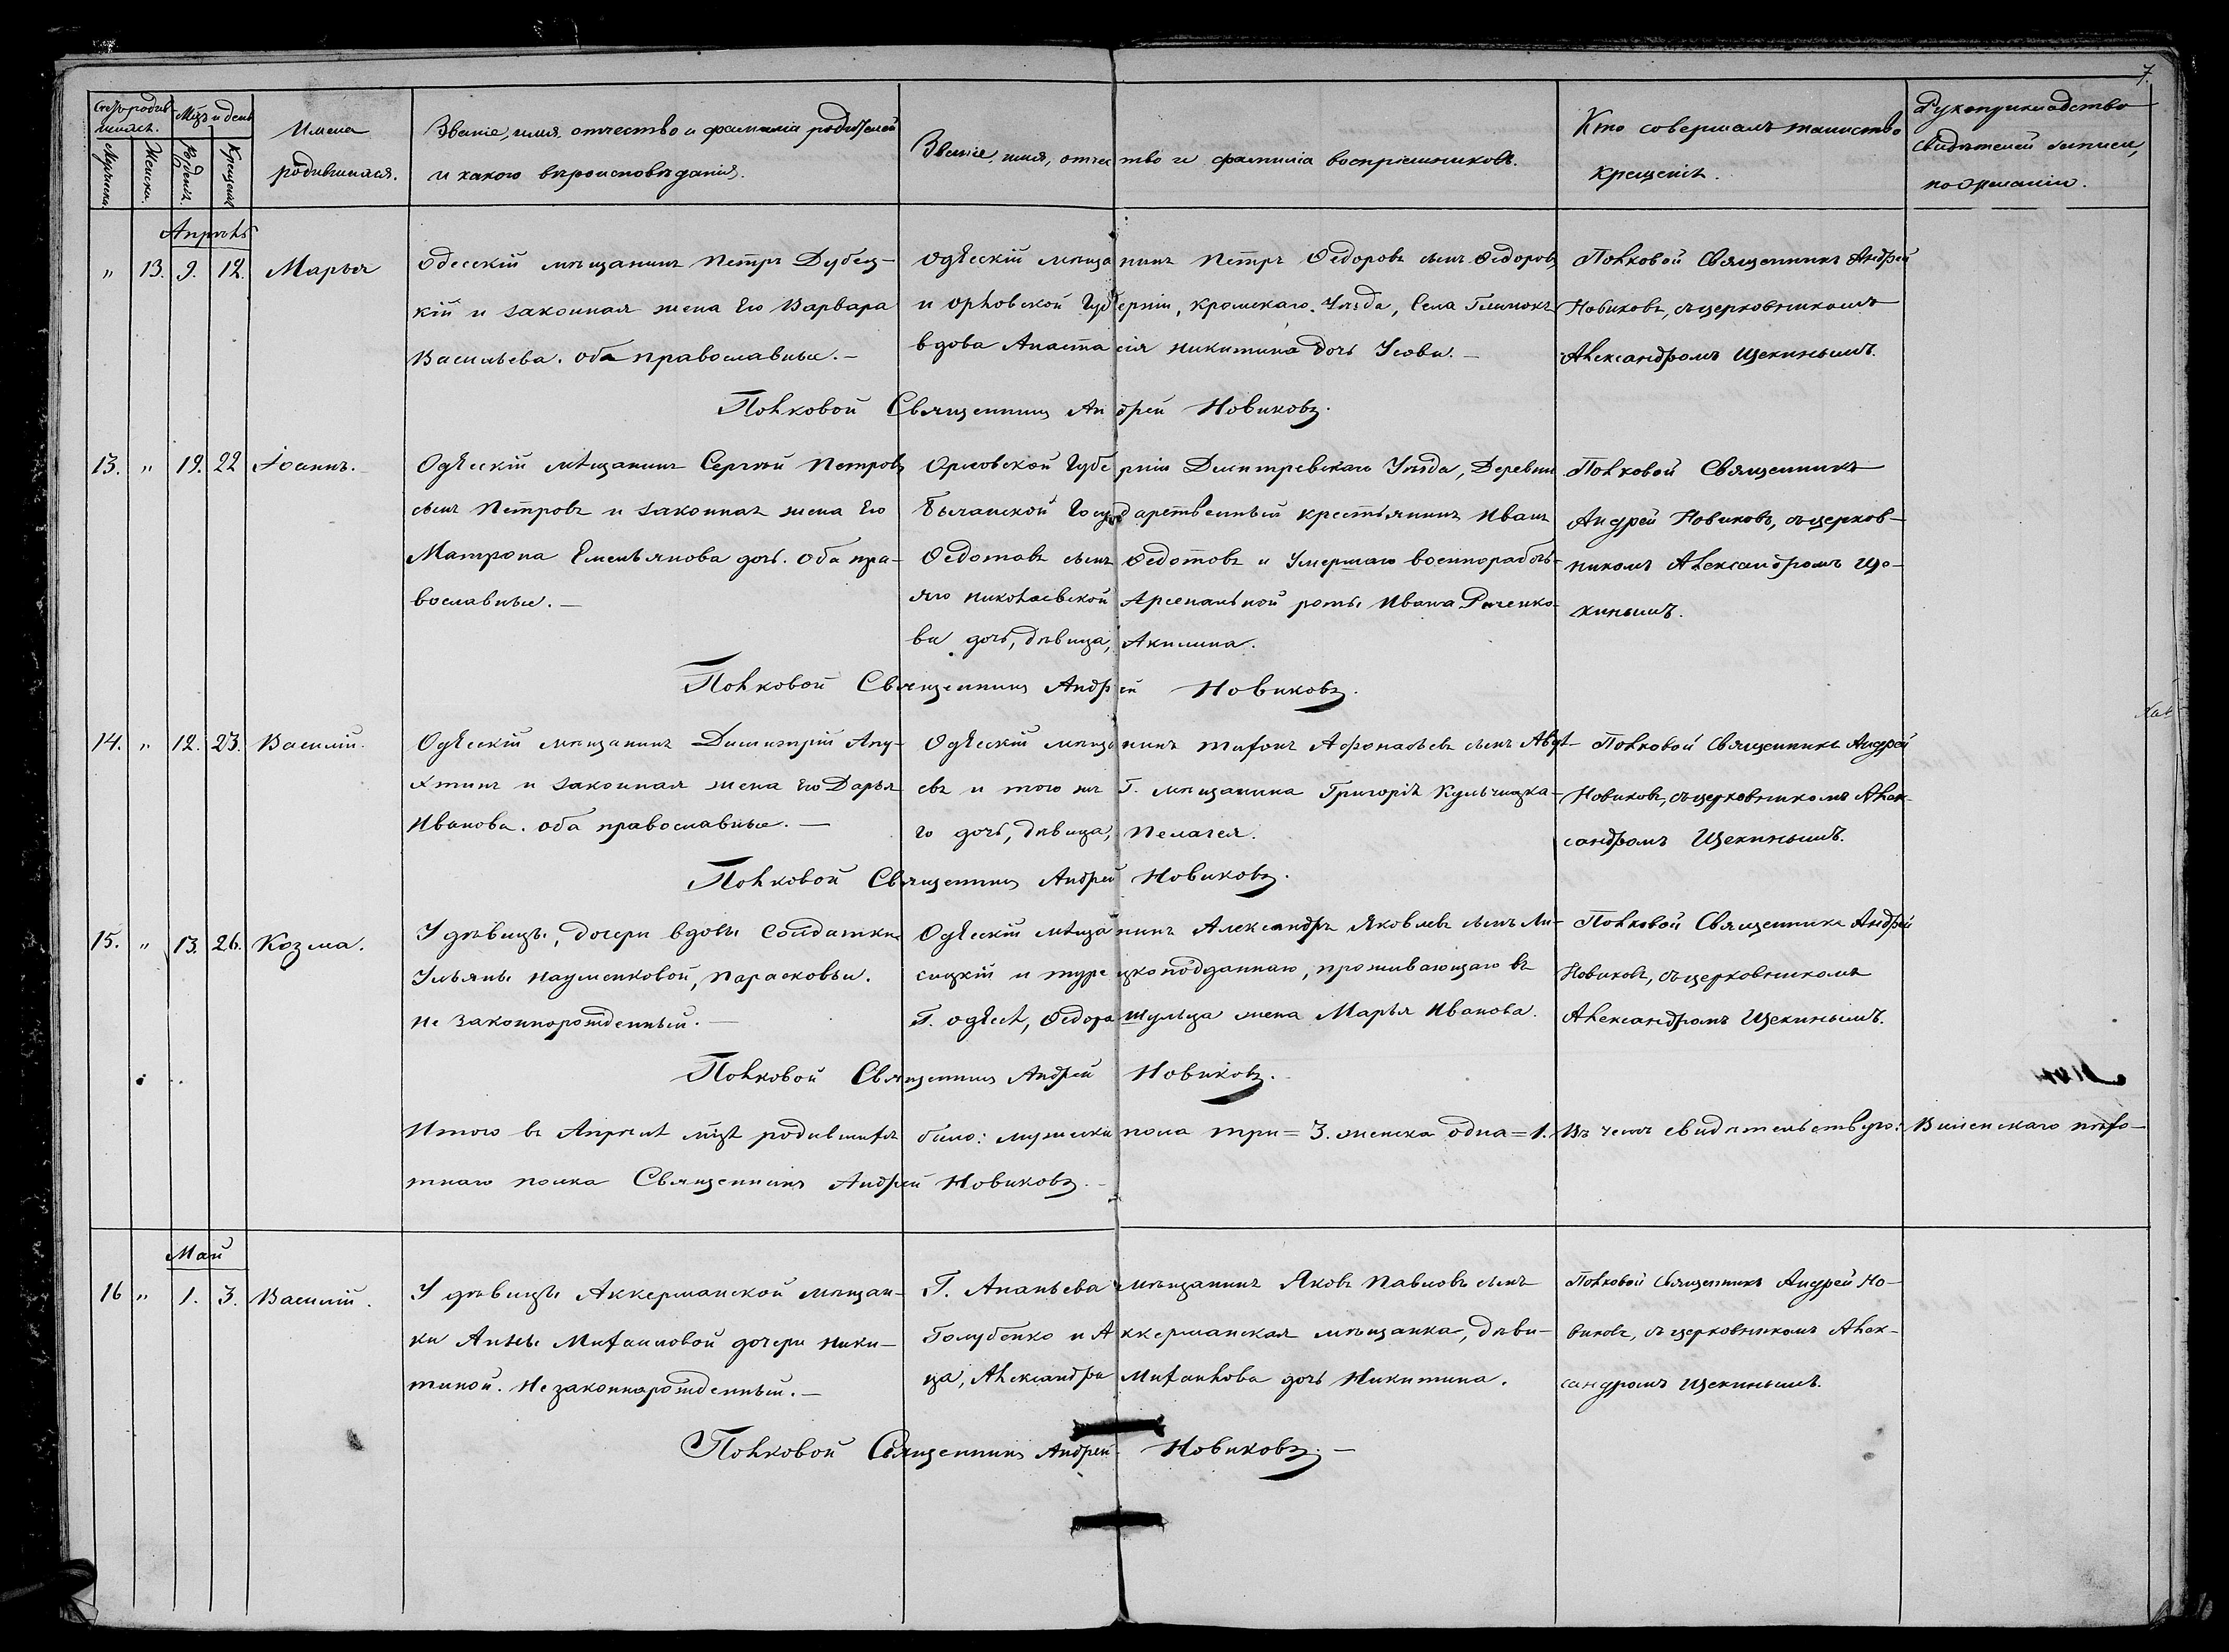 7.
Счетъ родив-
шихся.
Мужеска.
Женска.
Мѣсяцъ и день
Рожденія.
Крещенія
Имена
родившихся.
Званіе, имя, отчество и фамилія родителей
и какого вѣроисповѣданія.
Званіе, имя, отчество и фамилія воспріемниковъ.
Кто совершалъ таинство
крещенія.
Рукоприкладство
свидѣтелей записи,
по желанію.
Апрѣль
" 13. 9. 12. Марья
Одесскій мѣщанинъ Петръ Дубец-
кій и законная жена его Варвара
Васильева. оба православные.—
Одѣсскій мѣщанинъ Петръ Ѳедоровъ сынъ Ѳедоровъ
и Орловской Губерніи, Кромскаго Уѣзда, Села Глинокъ
вдова Анастасія Никитина дочь Усова.—
Полковой Священникъ Андрей
Новиковъ, съ церковникомъ
Александромъ Щекинымъ.
Полковой Священникъ Андрей Новиковъ.
13. " 19. 22 Іоаннъ.
Одѣсскій мѣщанинъ Сергѣй Петровъ
сынъ Петровъ и законная жена его
Матрона Емельянова дочь. Оба пра-
вославные.—
Орловской Губерніи Дмитревскаго Уѣзда, Деревни
Бычанской Государственный крестьянинъ Иванъ
Ѳедотовъ сынъ Ѳедотовъ и Умершаго военнорабоч-
яго Николаевской Арсенальной роты Ивана
ва дочь, дѣвица, Акилина.
Полковой Священникъ
Андрей Новиковъ, съ церков-
никомъ Александромъ Ще-
кинымъ.
Полковой Священникъ Андрей Новиковъ.
14. " 12. 23. Василій.
Одѣсскій мѣщанинъ Димитрій Апу-
хтинъ и законная жена его Дарья
Иванова. оба православные.—
Одѣсскій мѣщанинъ Тифонъ Афонасьевъ сынъ Авдѣ-
евъ и того же Г. мѣщанина Григорія Кульчицка-
го дочь, дѣвица, Пелагея.
Полковой Священникъ Андрей
Новиковъ, съ церковникомъ Алек-
сандромъ Щекинымъ.
Полковой Священникъ Андрей Новиковъ.
15. " 13. 26. Козма.
У дѣвицы, дочери вдовы Солдатки
Ульяны Науменковой, Парасковьи.
Не законнорожденный.—
Одѣсскій мѣщанинъ Александръ Яковлевъ сынъ Ли-
сицкій и турецкоподданнаго, проживающаго въ
Г. Одѣсѣ, Ѳедора Шульца жена Марья Иванова.
Полковой Священникъ Андрей
Новиковъ, съ церковникомъ
Александромъ Щекинымъ.
Полковой Священникъ Андрей Новиковъ.
Итого въ Апрѣлѣ мцѣ родившихся было: мужеска пола три=3. женска одна=1. Въ чемъ свидѣтельствую: Виленскаго пѣхо-
тнаго полка Священникъ Андрей Новиковъ.
Май
16 " 1. 3. Василій.
У дѣвицы Аккерманской мѣщан-
ки Анны Михаиловой дочери Ники-
тиной. Не законнорожденный.—
Г. Ананьева мѣщанинъ Яковъ Павловъ сынъ
Голубенко и Аккерманская мѣщанка, дѣви-
ца, Александра Михаилова дочь Никитина.
Полковой Священникъ Андрей Но-
виковъ, съ церковникомъ Алек-
сандромъ Щекинымъ.
Полковой Священникъ Андрей Новиковъ.—